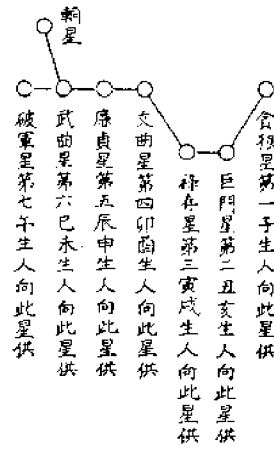 貪狼星第一子生人向此星供
巨門星第二丑亥生人向此星供
祿存星第三寅戌生人向此星供
文曲星第四卯酉生人向此星供
廉貞星第五辰申生人向此星供
輔星
武曲星第六巳未生人向此星供
破軍星第七午生人向此星供